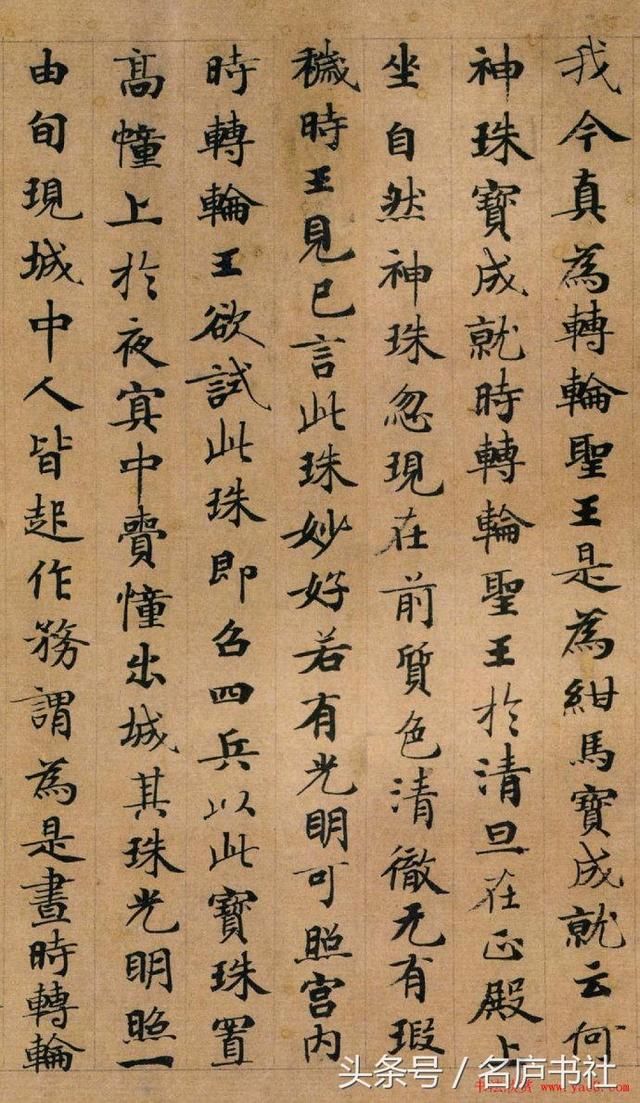 我今真為轉輪聖王是為紺馬寶成就云何
神珠寶成就時轉輪聖王於清旦在正殿上
坐自然神珠忽現在前質色清徹无有瑕
穢時王見已言此珠妙好若有光明可照宮内
時轉輪王欲試此珠即召四兵以此寶珠置
高幢上於夜冥中賷幢出城其珠光明照一
由旬現城中人皆起作務謂為是晝時轉輪
头条号/名庐书社
www.yac8.com